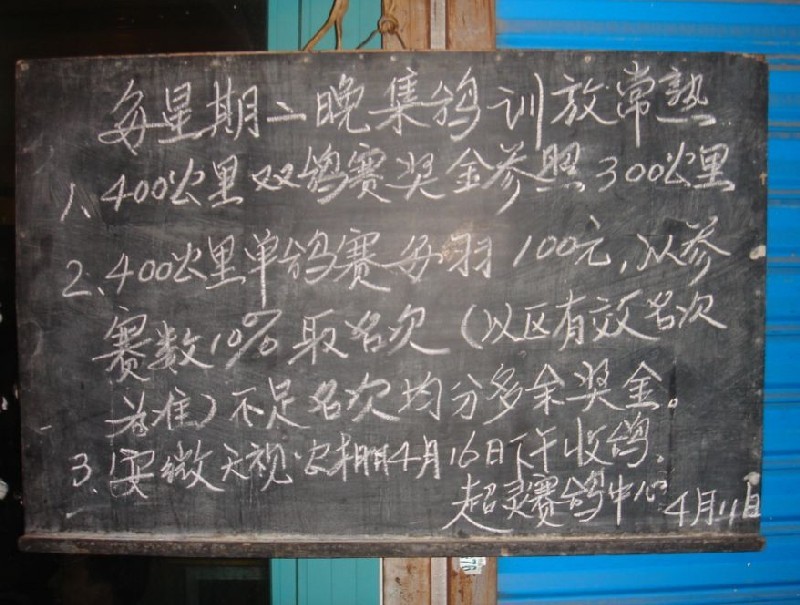 每星期二晚集鸽训放常熟
1、400公里双鸽赛奖金参照300公里
2、400公里单鸽赛每羽100元,以参
赛数10%取名次(以区有效名次
为准)不足名次均分多余奖金。
3、安徽天视 4月16日下午收鸽.
超灵赛鸽中心
4月11日